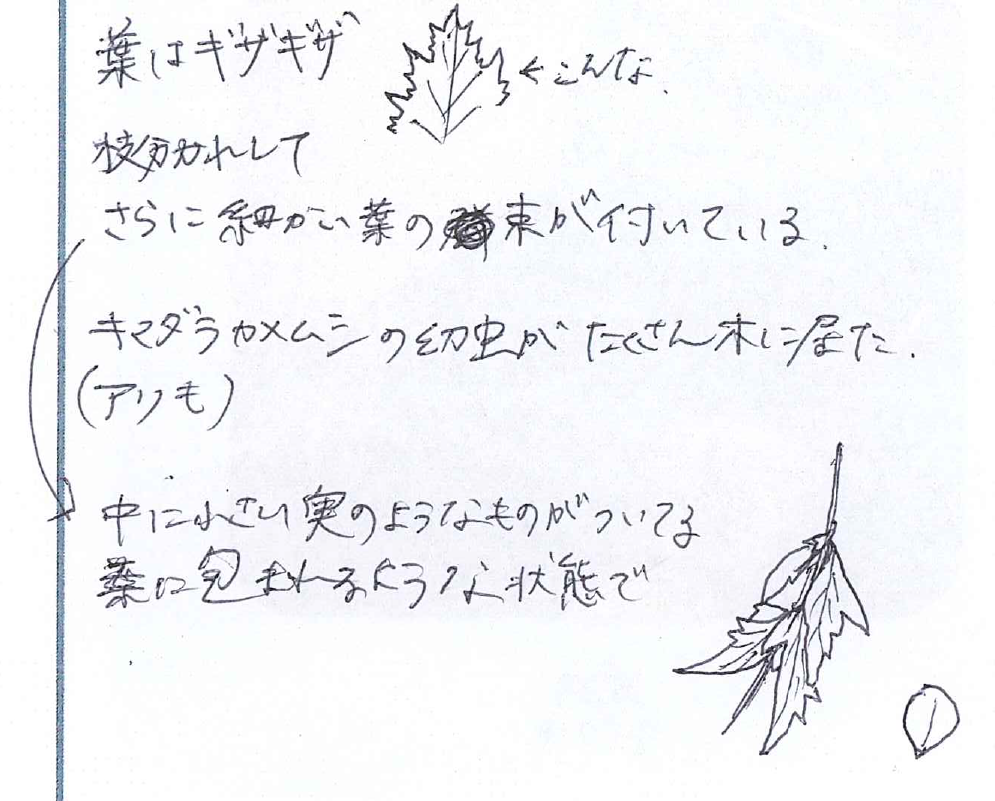 葉はギザギザ
←こんな
枝分かれして
さらに細かい葉の束が付いている.
キマダラカメムシの幼虫がたくさん木に居た.
(アリも)
中に小さい実のようなものがついてる
葉に包まれるような状態で